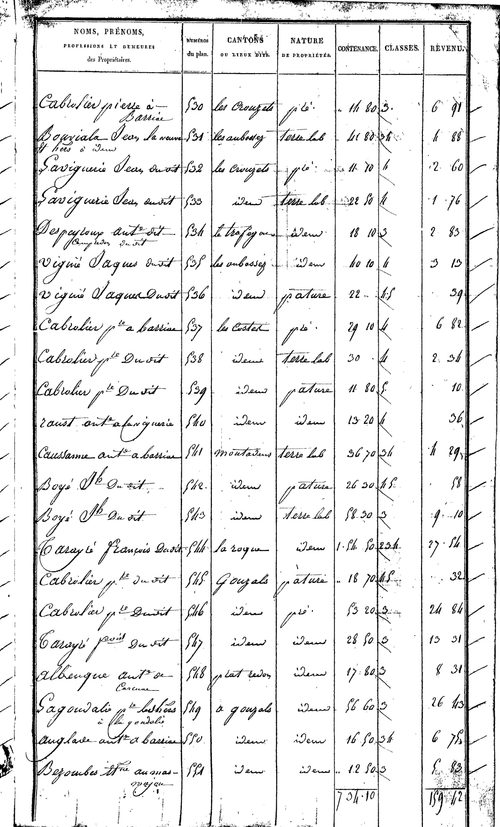 NOMS, PRÉNOMS, PROFESSIONS ET DEMEURES des Propriétaires. NUMÉROS du plan. CANTONS OU LIEUX DITS. NATURE DE PROPRIÉTÉS. CONTENANCE. CLASSES. REVENU.
Cabrolier pierre à Barrire 530 les Crouzets pré 14 80 3 6 91
Bouviala Jean la veuve et hoirs à idem 531 les aubosses terre lab 41 80 34 4 88
Laviguerie Jean du dit 532 les Crouzets pré 11 70 4 2 60
Laviguerie Jean du dit 533 idem terre lab 22 50 4 1 76
Despeyroux ant.e dit du dit 534 idem 18 10 3 2 83
Viguié Jaques du dit 535 les aubosses idem 40 10 4 3 13
Viguié Jaques Du dit 536 idem pature 22 45 39
Cabrolier p.re a barrire 537 les Costes pré 29 10 4 6 82
Cabrolier p.re Du dit 538 idem terre lab 30 4 2 34
Cabrolier p.re Du dit 539 idem pature 11 80 5 10
raust ant.e a laviguerie 540 idem idem 13 20 4 36
Caussanne ant.e a barrire 541 terre lab 36 70 34 4 29
Boyé J.h Du dit 542 idem pature 26 30 45 58
Boyé J.h Du dit 543 idem terre lab 58 30 3 9 10
Tarayré françois Du dit 544 la roque idem 1 54 50 234 27 54
Cabrolier p.re du dit 545 Gouzals pature 18 70 45 32
Cabrolier p.re Du dit 546 idem pré 53 20 3 24 84
Tarayré Du dit 547 idem idem 28 50 3 13 31
albenque ant.e de 548 prat redon idem 17 80 3 8 31
Lagoudalie p.re les hoirs à la goudalie 549 a gouzals idem 56 60 3 26 43
anglare ant.e a barrire 550 idem idem 16 50 34 6 75
Bezombes au mas 551 idem idem 12 50 3 5 83
7 34 10 159 42